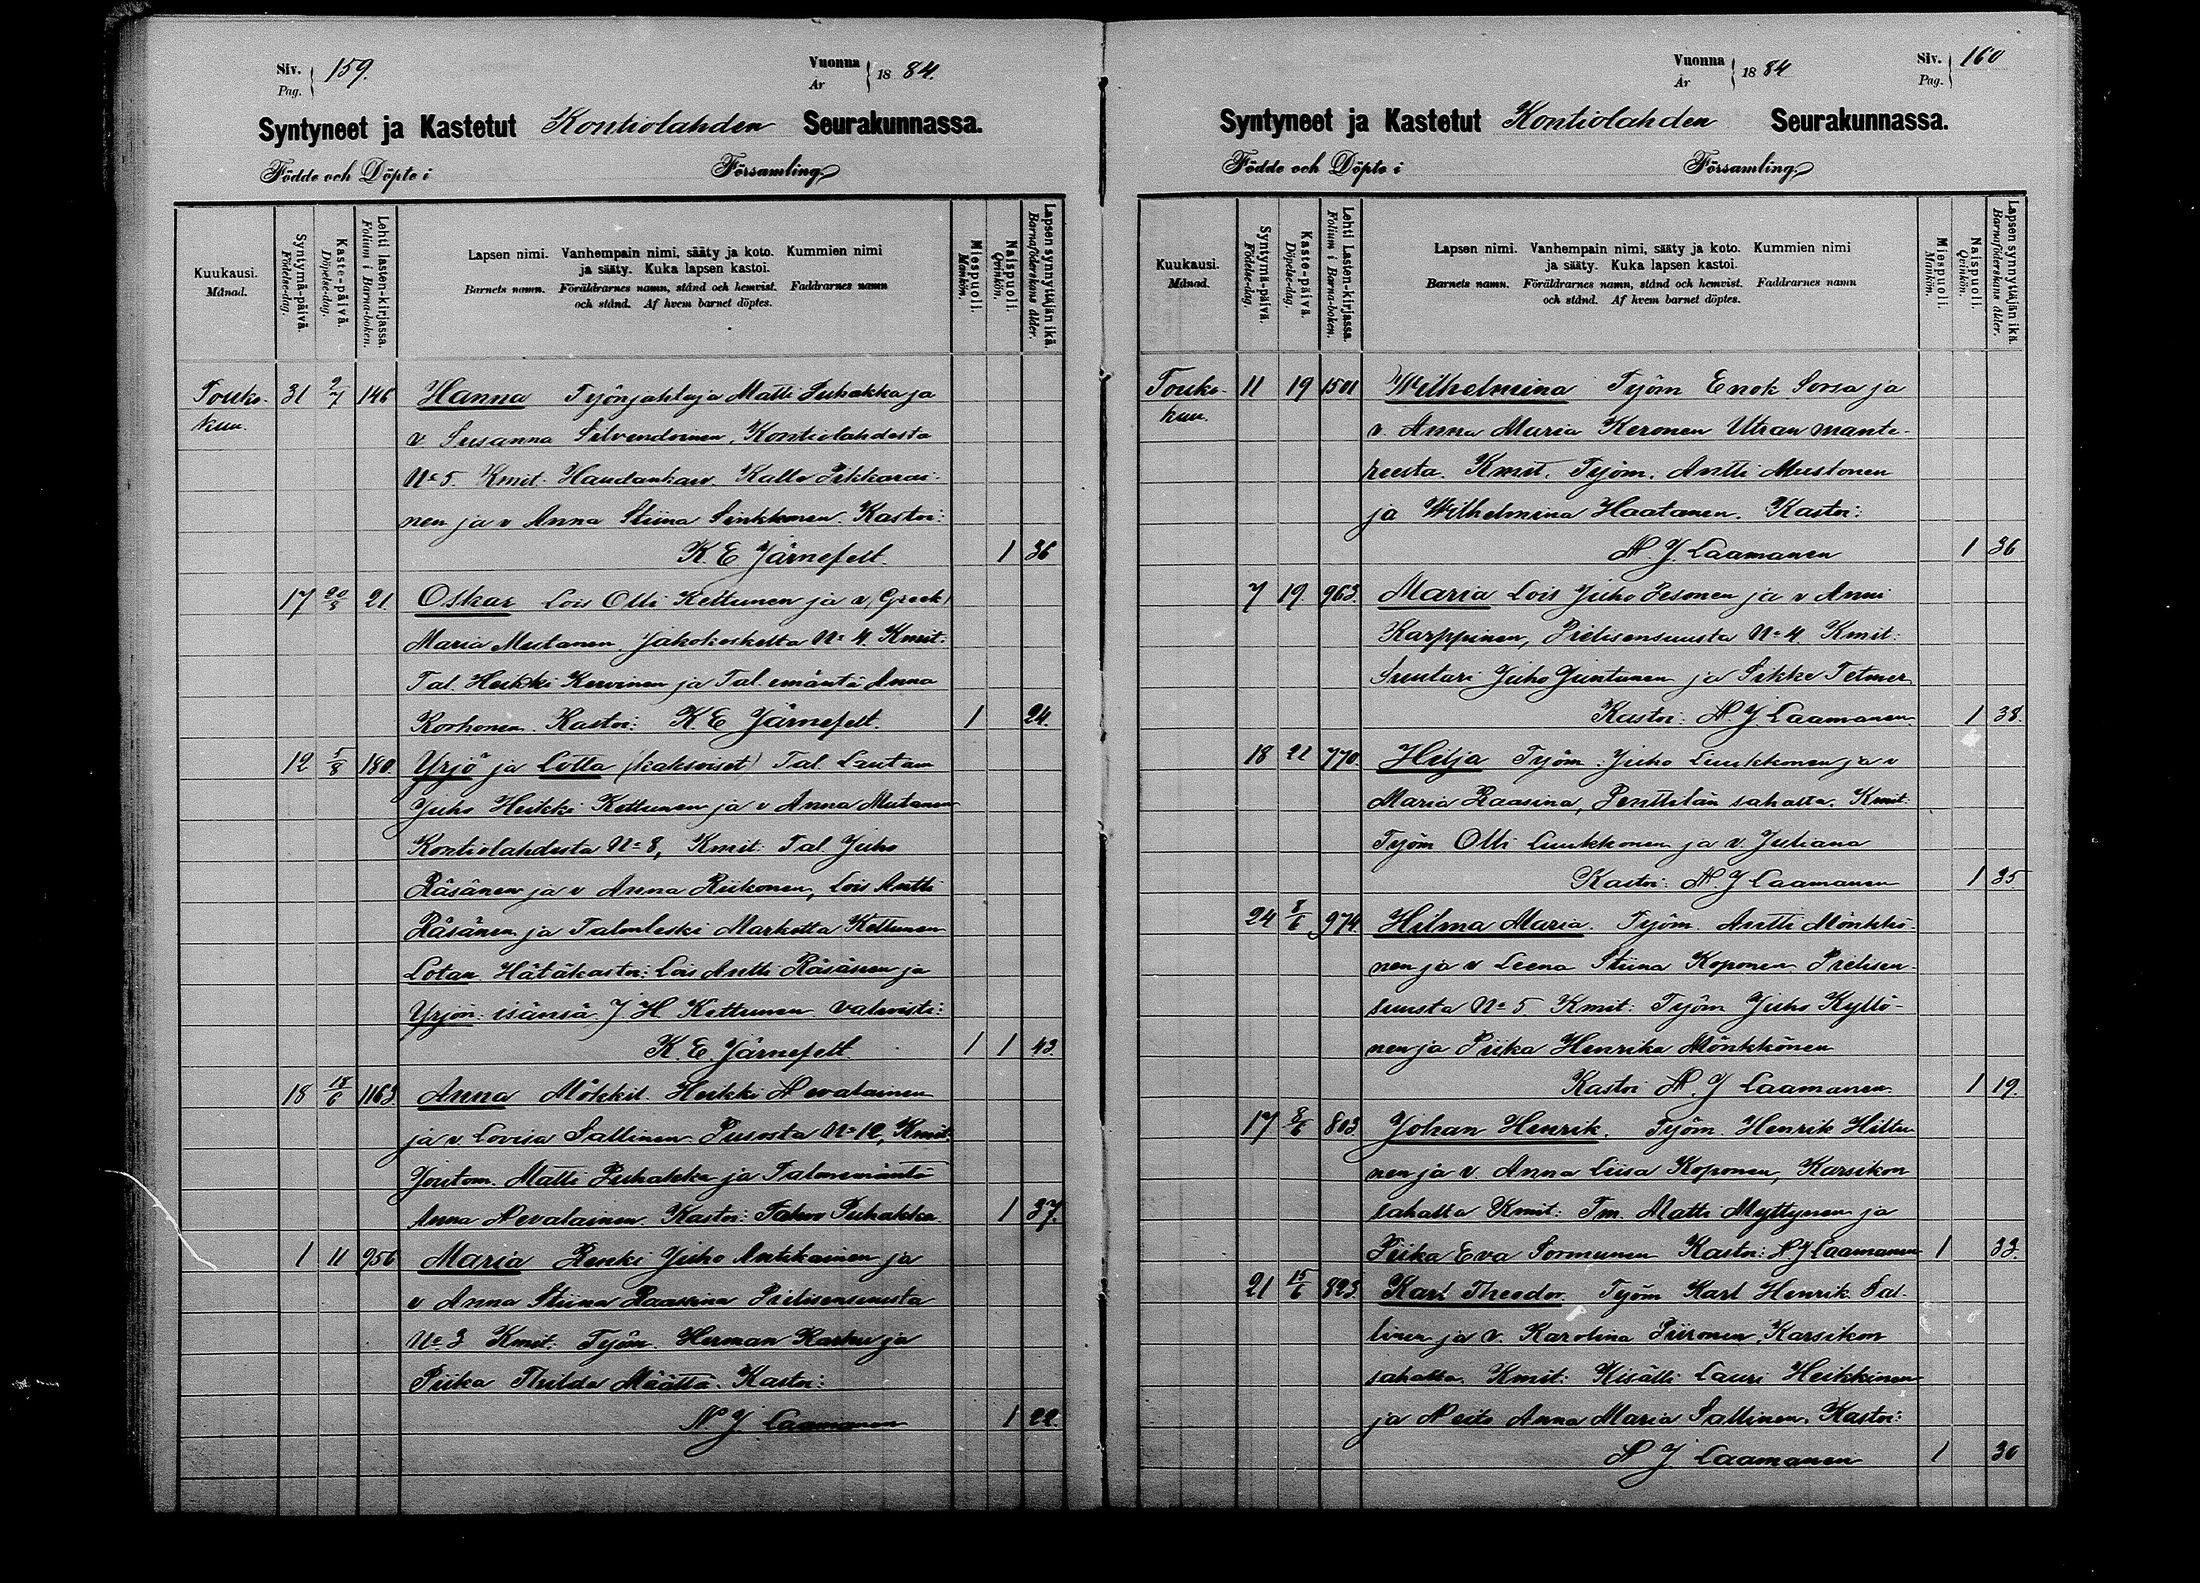 Siv. Pag. 159.
Vuonna År 1884.
Syntyneet ja Kastetut Kontiolahden Seurakunnassa.
Födde och Döpte i Församling
Kuukausi. Månad.
Syntymä-päivä. Födelse-dag.
Kaste-päivä. Döpelse-dag.
Lehti lasten-kirjassa. Folium i Barna-boken.
Lapsen nimi. Vanhempain nimi, sääty ja koto. Kummien nimi
ja sääty. Kuka lapsen kastoi.
Barnets namn. Föräldrarnes namn, stånd och hemvist. Faddrarnes namn
och stånd. Af hvem barnet döptes.
Miespuoli. Mankön.
Naispuoli. Qvinkön.
Lapsen synnyttäjän ikä. Barnaföderskans ålder.
Touko- 31 2/7 146 Hanna Työnjohtaja Matti Puhakka ja
kuu. v Susanna Silvendoinen, Kontiolahdesta
No 5. Kmit: Haudankaiv. Kalle Pikkarai-
nen ja v Anna Stiina Sinkkonen. Kastoi:
K. E Järnefelt. 1 36
17 20/8 21 Oskar Lois Olli Kettunen ja v, (Greek)
Maria Mutanen Jakokoskelta No 4. Kmit:
Tal. Heikki Kervinen ja Tal. emäntä Anna
Korhonen. Kastoi: K. E Järnefelt. 1 24.
12 5/8 180. Yrjö ja Lotta (kaksoiset) Tal. Lautam
Juho Heikki Kettunen ja v Anna Mutanen
Kontiolahdesta No 8, Kmit: Tal. Juho
Räsänen ja v Anna Riikonen, Lois Antti
Räsänen ja Talonleski Marketta Kettunen
Lotan Hätäkastoi: Lois Antti Räsänen ja
Yrjön isänsä J. H Kettunen vahvisti:
K. E. Järnefelt 1 1 43.
18 18/6 1163 Anna Mökkil. Heikki Nevalainen
ja v Lovisa Sallinen Pusosta No 12, Kmit:
Joutom. Matti Puhakka ja Talonemäntä
Anna Nevalainen. Kastoi: Tahvo Puhakka. 1 37.
1 11 956 Maria Renki Juho Antikainen ja
v Anna Stiina Raassina Pielisensuusta
No 3 Kmit: Työm. Herman Karhu ja
Piika Thilda Määttä. Kastoi:
N J Laamanen 1 22.
Vuonna År 1884
Siv. Pag. 160
Syntyneet ja Kastetut Kontiolahden Seurakunnassa.
Födde och Döpte i Församling
Kuukausi. Månad.
Syntymä-päivä. Födelse-dag.
Kaste-päivä. Döpelse-dag.
Lehti Lasten-kirjassa. Folium i Barna-boken.
Lapsen nimi. Vanhempain nimi, sääty ja koto. Kummien nimi
ja sääty. Kuka lapsen kastoi.
Barnets namn. Föräldrarnes namn, stånd och hemvist. Faddrarnes namn
och stånd. Af hvem barnet döptes.
Miespuoli. Mankön.
Naispuoli. Qvinkön.
Lapsen synnyttäjän ikä. Barnaföderskans ålder.
Touko- 11 19 1501 Wilhelmina Työm Enok Sorsa ja
kuu. v. Anna Maria Keronen Utran mante-
reesta. Kmit. Työm. Antti Mustonen
ja Wilhelmina Haatanen. Kastoi:
N. J. Laamanen 1 36
7 19. 963. Maria Lois Juho Pesonen ja v Anni
Karppinen, Pielisensuusta No 4. Kmit:
Suutari Juho Juntunen ja Sikke Tetmer
Kastoi: N. J Laamanen. 1 38.
18 22 770. Hilja Työm. Juho Luukkonen ja v
Maria Raasina, Penttilän sahalta. Kmit:
Työm Olli Luukkonen ja v. Juliana
Kastoi: N. J Laamanen 1 35
24 8/6 974. Hilma Maria. Työm. Antti Mönkkö-
nen ja v Leena Stiina Koponen Pielisen-
suusta No 5 Kmit: Työm Juho Kyllö-
nen ja Piika Henrika Mönkkönen
Kastoi N. J Laamanen. 1 19.
17 8/6 803. Johan Henrik. Työm. Henrik Hiltu-
nen ja v. Anna Liisa Koponen, Karsikon
sahalta Kmit: Tm. Matti Myttynen ja
Piika Eva Sormunen Kastoi: N J Laamanen 1 33.
21 15/6 823. Karl Theodor. Työm Karl Henrik Sal-
linen ja v. Karolina Piironen, Karsikon
sahalta. Kmit: Kisälli Lauri Heikkinen
ja Neito Anna Maria Sallinen. Kastoi:
N J Laamanen 1 30